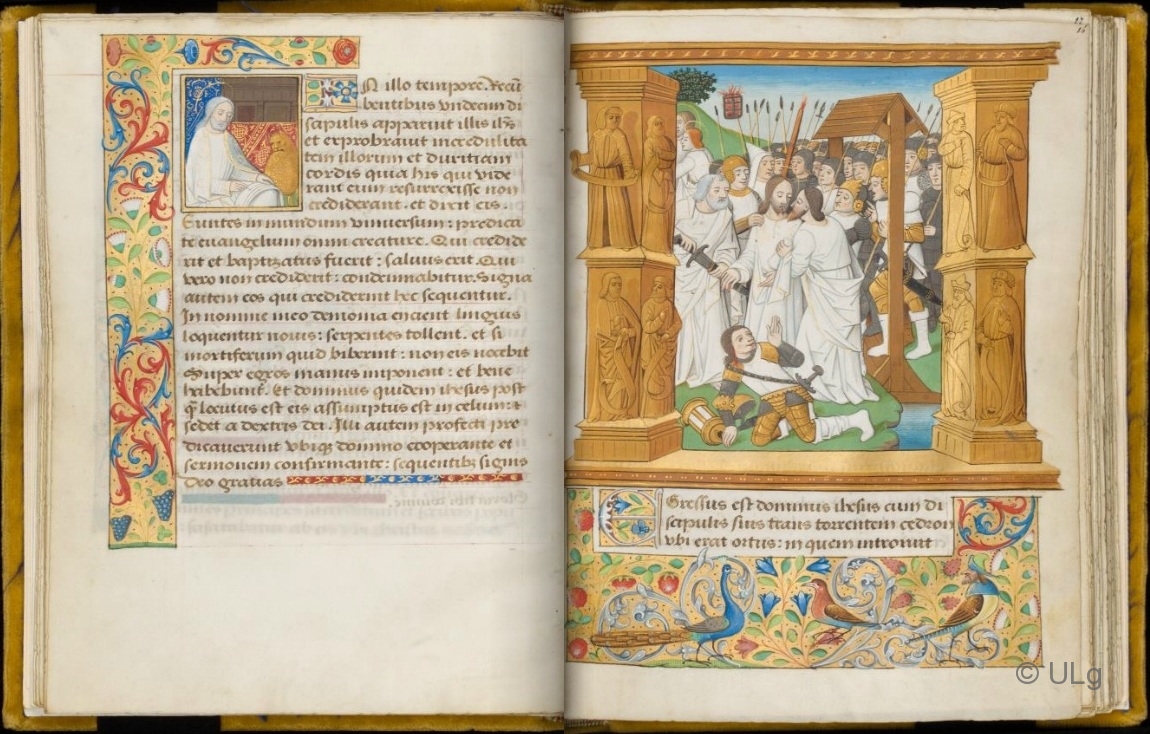 N illo tempore. Recū
bentibus vndecim di
scipulis apparuit illis ihs
et exprobrauit incredulita
tem illorum et duritiam
cordis quia his qui vide
rant eum resurrexisse non
crediderant. et dixit eis.
Euntes in mundum vniuersum: predica
te euangelium omni creature. Qui credide
rit et baptizatus fuerit: saluus erit. Qui
vero non crediderit: condemnabitur. Signa
autem eos qui crediderint hec sequentur.
In nomine meo demonia eicient linguis
loquentur nouis: serpentes tollent. et si
mortiferum quid biberint: non eis nocebit
Super egros manus imponent: et bene
habebunt. Et dominus quidem ihesus post
q̄ locutus est eis assumptus est in celum: et
sedet a dextris dei. Illi autem profecti pre
dicauerunt vbiqz domino cooperante et
sermonem confirmante: sequentibz signis
Deo gratias
Egressus est dominus ihesus cum di
scipulis suis trans torrentem cedron
vbi erat ortus: in quem introiuit
© ULg